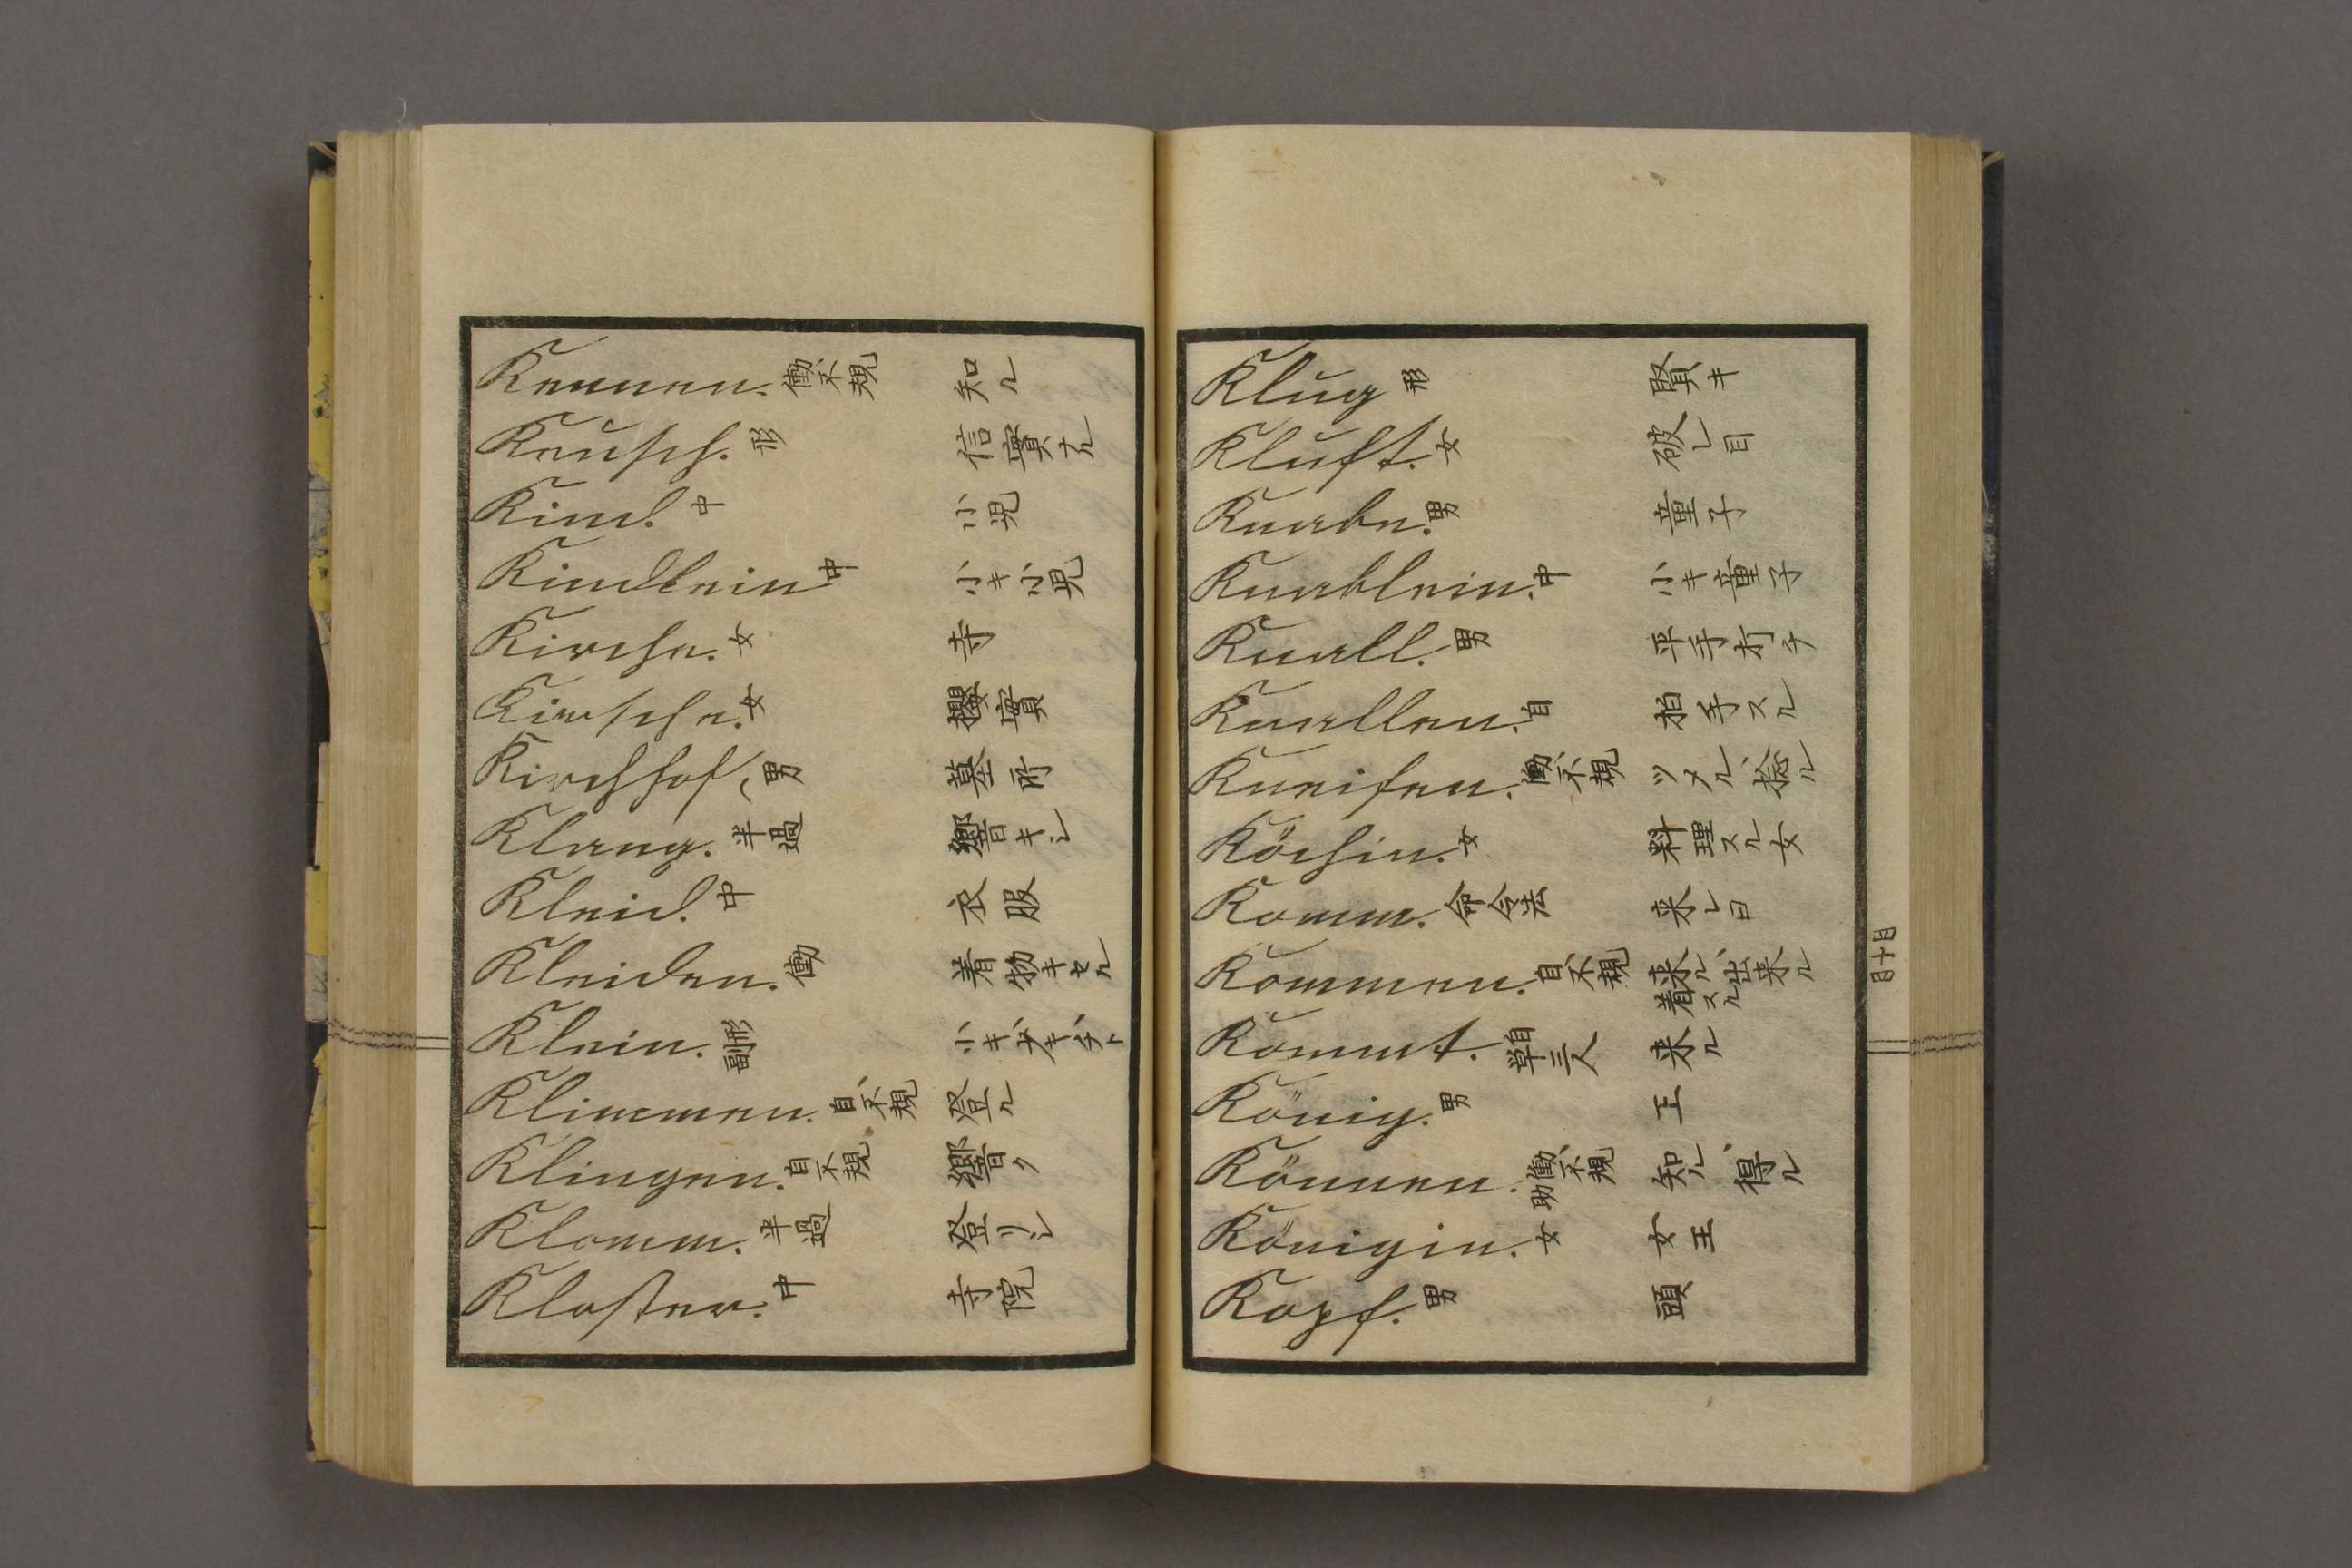 Kennen. 働、不規 知ル
Keusch. 形 信實ナル
Kind. 中 小児
Kindlein 中 小キ小児
Kirche. 女 寺
Kirsche. 女 櫻實
Kirchhof, 男 墓所
Klang. 半過 響キシ
Kleid. 中 衣服
Kleiden. 働 着物キセル
Klein. 形副 小キ
Klimmen. 自、不規 登ル
Klingen. 自、不規 響ク
Klomm. 半過 登リシ
Kloster. 中 寺院
Klug 形 賢キ
Kluft. 女 破レ目
Knabe. 男 童子
Knablein. 中 小キ童子
Knall. 男 平手打チ
Knallen. 自 拍手スル
Kneifen. 働、不規 ツメル、捻ル
Köchin. 女 料理スル女
Komm. 命令法 来レヨ
Kommen. 自、不規 来ル、出来ル 着スル
Kommt. 自単三人 来ル
König. 男 王
Können. 働、不規 助 知ル、得ル
Königin. 女 女王
Kopf. 男 頭